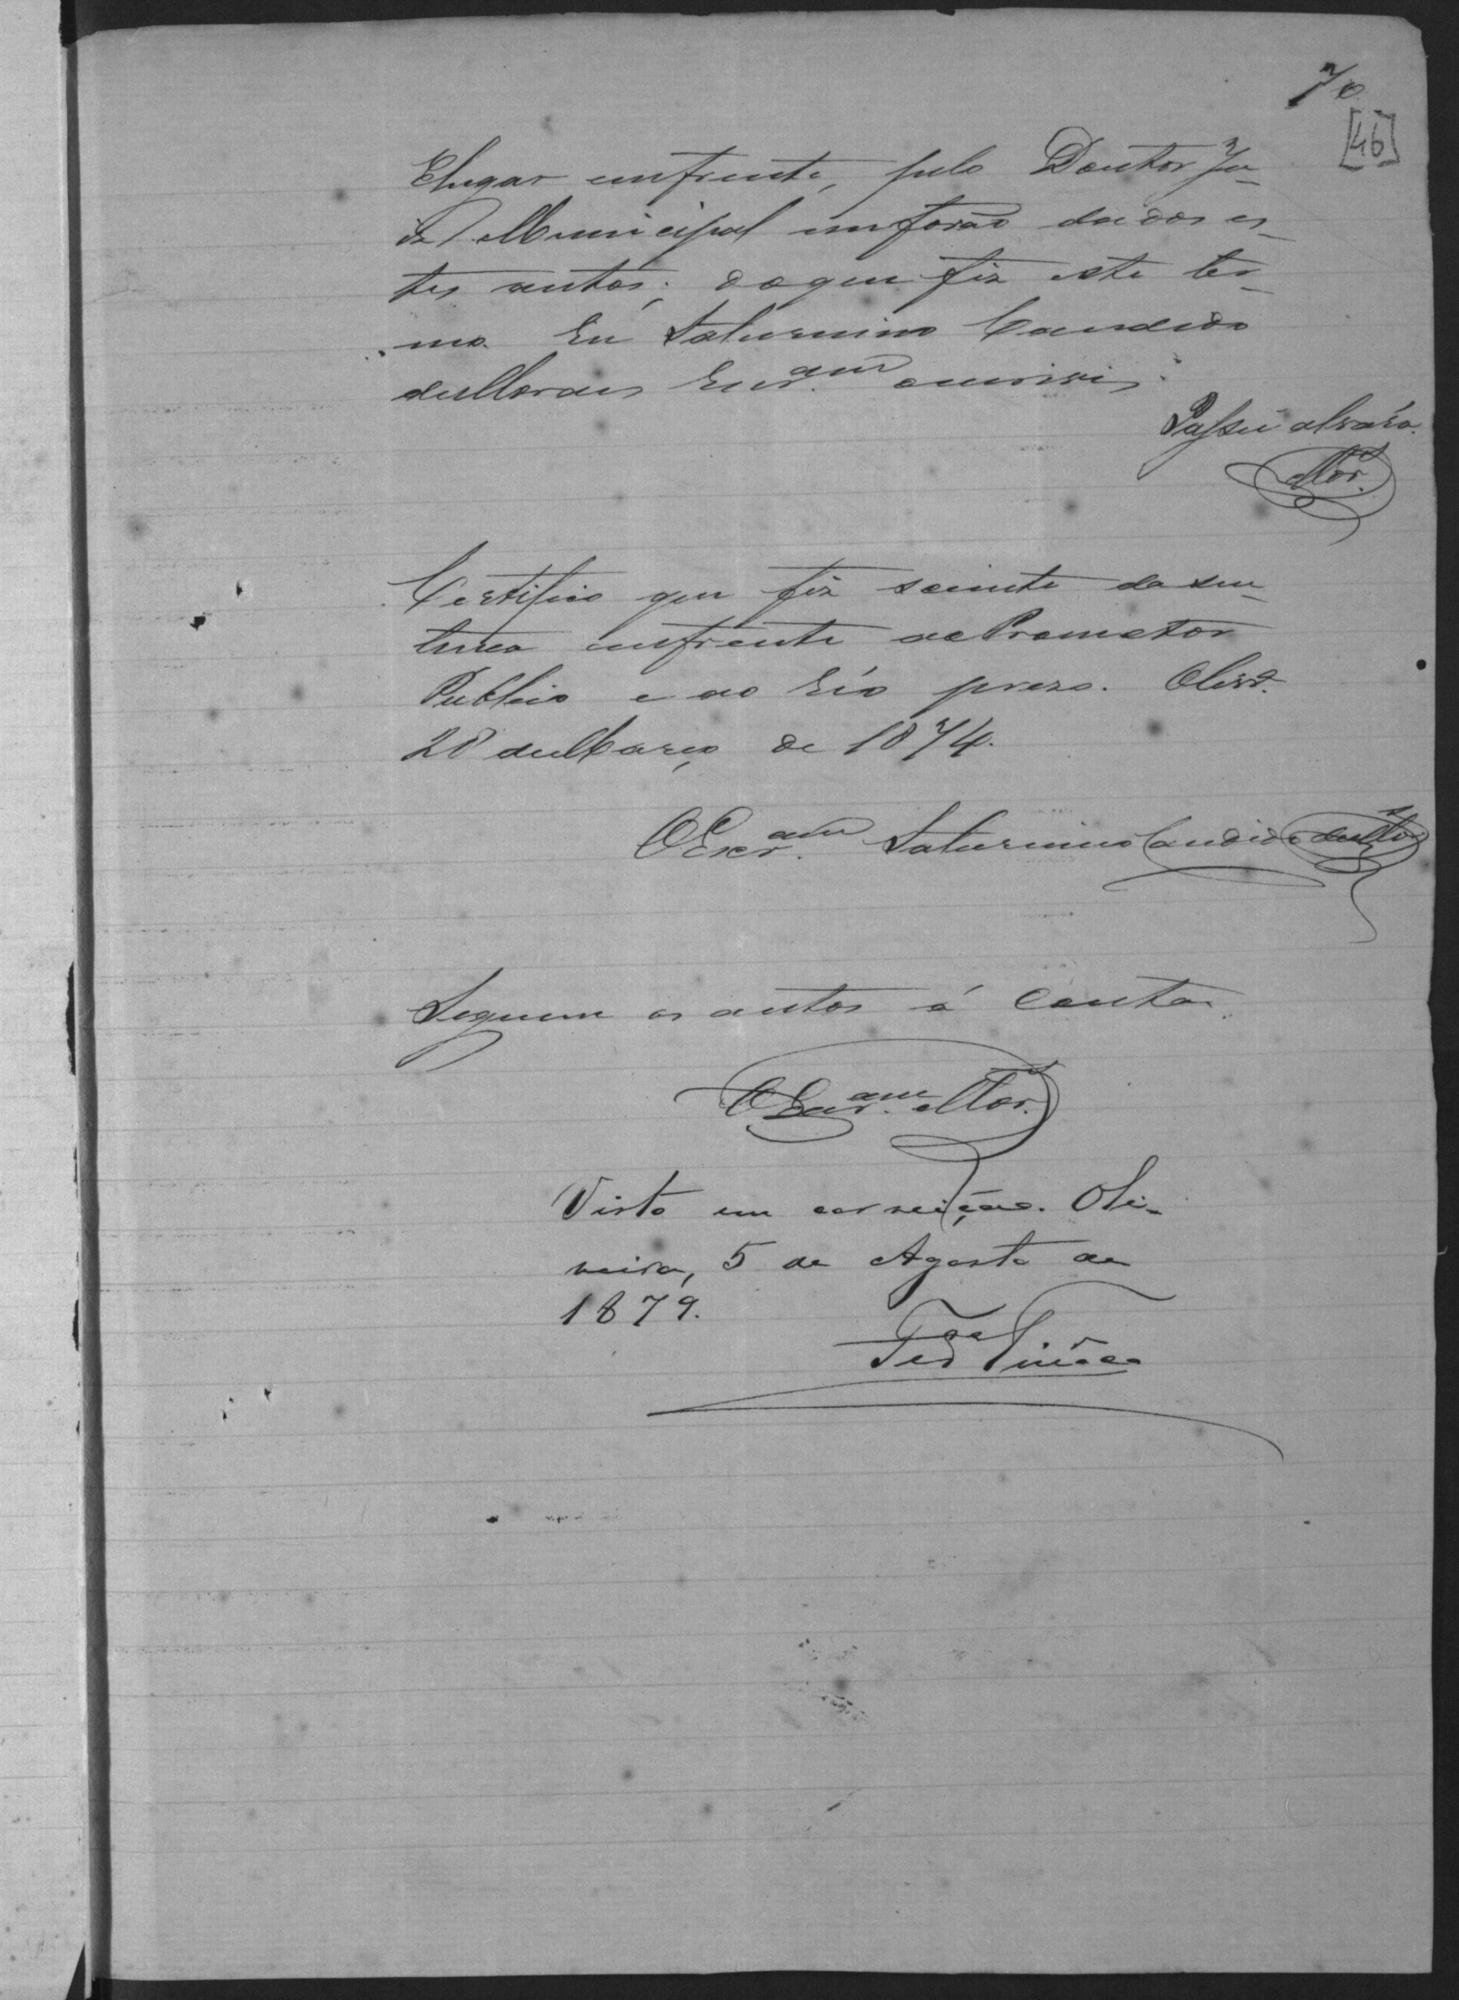 70
[46]
Elugar emfrente, pelo Doutor Ju-
iz Municipal me forão dados es-
tes autos; doque fiz este ter-
mo. Eu Saturnino Candido
deMoraes Escr.am oescrivi
Passei alvará.
Mor.s
Certifico que fiz sciente da sen-
tença emfrente aoPromotor
Publico e ao Réo prezo. Olivr.ª
28 deMarço de 1874.
OEscr.am Saturnino Candido deMor.s
Seguem os autos á Conta.
OEscr.am Mor.s
Visto em correição. Oli-
veira, 5 de Agosto de
1879.